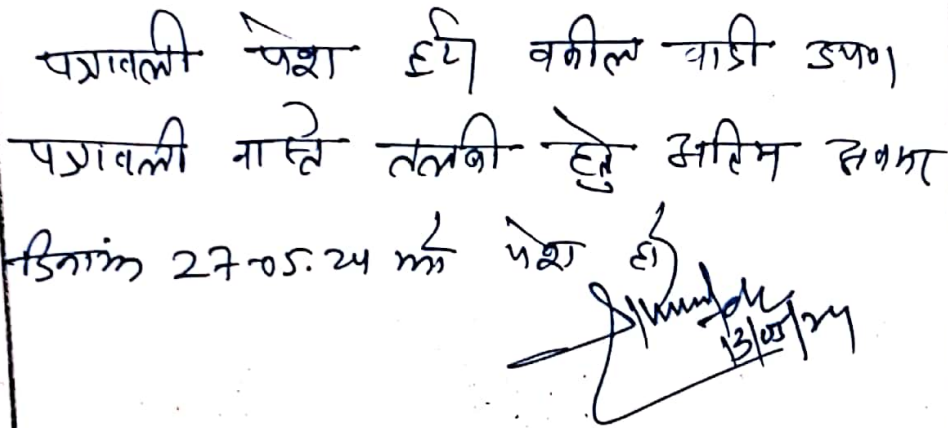 पत्रावली पेश हुयी वकील वादी उप०।
पत्रावली वास्ते तलबी हेतु अंतिम अवसर
दिनांक 27-05.24 को पेश हो
13/05/24